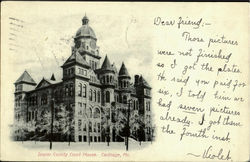 Dear friend,-
Those pictures
were not finished
so I got the plates.
He said you paid for
six, I told him we
had seven pictures
already. I got them
the fourth inst.
Jasper County Court House. Carthage, Mo.